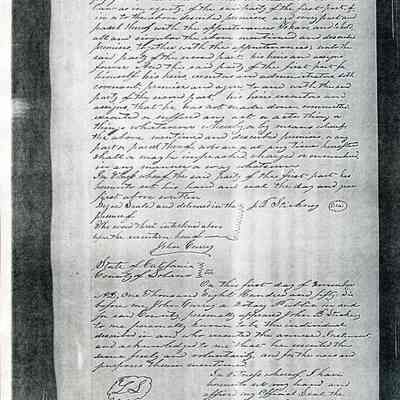 in equity of the said party of the first part of
in or to the above described premises and every part and
parcel thereof with the appurtenances To have and to hold
all and singular the above mentioned and described
premises together with the appurtenances unto the
said party of the second part his heirs and assigns
forever And the said party of the first part for
himself his heirs executors and administrators doth
covenant promise and agree to and with the said
party of the second part his heirs executors and
assigns that he has not made done committed
executed or suffered any act or acts thing or
things whatsoever whereby or by means whereof
the above mentioned and described premises or any
part or parcel thereof now are or at any time hereafter
shall or may be impeached charged or incumbered
in any manner or way whatsoever
In Witness whereof the said party of the first part has
hereunto set his hand and seal the day and year
first above written
Signed Sealed and delivered in the
presence of
The word interlined above
before the execution hereof
John Currey
State of California
County of Solano
On this first day of November
A.D. One Thousand Eight Hundred and fifty
before me John Currey a Notary Public in and
for said County personally appeared John B.
to me personally known to be the individual
described in and who executed the annexed
and acknowledged to me that he executed the
same freely and voluntarily and for the uses and
purposes therein mentioned
In Witness whereof I have
hereunto set my hand and
affixed my Official Seal the